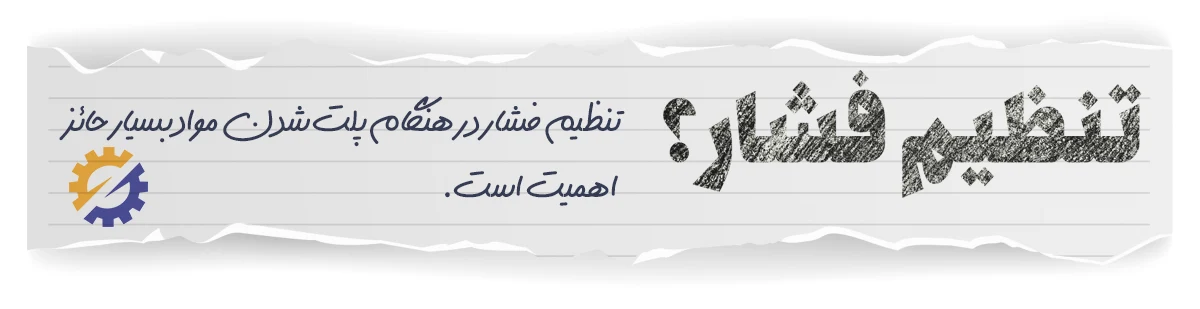 تنظیم فشار؟
تنظیم فشار در هنگام پلت شدن مواد بسیار حائز
اهمیت است.